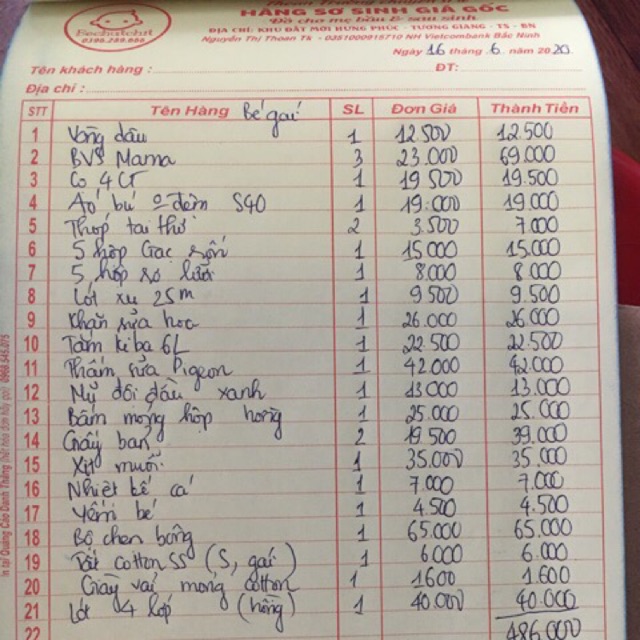 Bechutchit
0396.289.666
HÀNG SƠ SINH GIÁ GỐC
Đồ cho mẹ bầu & sau sinh
ĐỊA CHỈ: KHU ĐẤT MỚI HƯNG PHÚC - TƯƠNG GIANG - TS - BN
Nguyễn Thị Thoan Tk - 0351000915710 NH Vietcombank Bắc Ninh
Ngày 16 tháng 6 năm 2020
Tên khách hàng : ĐT:
Địa chỉ :
STT Tên Hàng Bé gái SL Đơn Giá Thành Tiền
1 Vòng dâu 1 12.500 12.500
2 BVS Mama 3 23.000 69.000
3 Co 4 CT 1 19 500 19.500
4 bú S40 1 19.000 19.000
5 tai thú 2 3.500 7.000
6 5 hộp Gạc 1 15.000 15.000
7 5 hộp rơ lưỡi 1 8.000 8.000
8 Lót xu 25m 1 9 500 9.500
9 Khăn sữa học 1 26.000 26.000
10 Tăm ki ba 6L 1 22.500 22.500
11 rửa Pigeon 1 42.000 42.000
12 Mỹ đôi đầu xanh 1 13000 13.000
13 Bấm móng hộp hồng 1 25.000 25.000
14 Giấy bạn 2 19 500 39.000
15 Xịt muỗi 1 35.000 35.000
16 Nhiệt kế cá 1 7.000 7.000
17 Yếm bé 1 4.500 4.500
18 Bộ chen bông 1 65.000 65.000
19 Tất cotton SS (S, gái) 1 6000 6.000
20 Giầy vải mỏng cotton 1 1600 1.600
21 Lót 4 lớp (hồng) 1 40.000 40.000
22 486.000
In tại Quảng Cáo Danh Thắng 0968.545.075